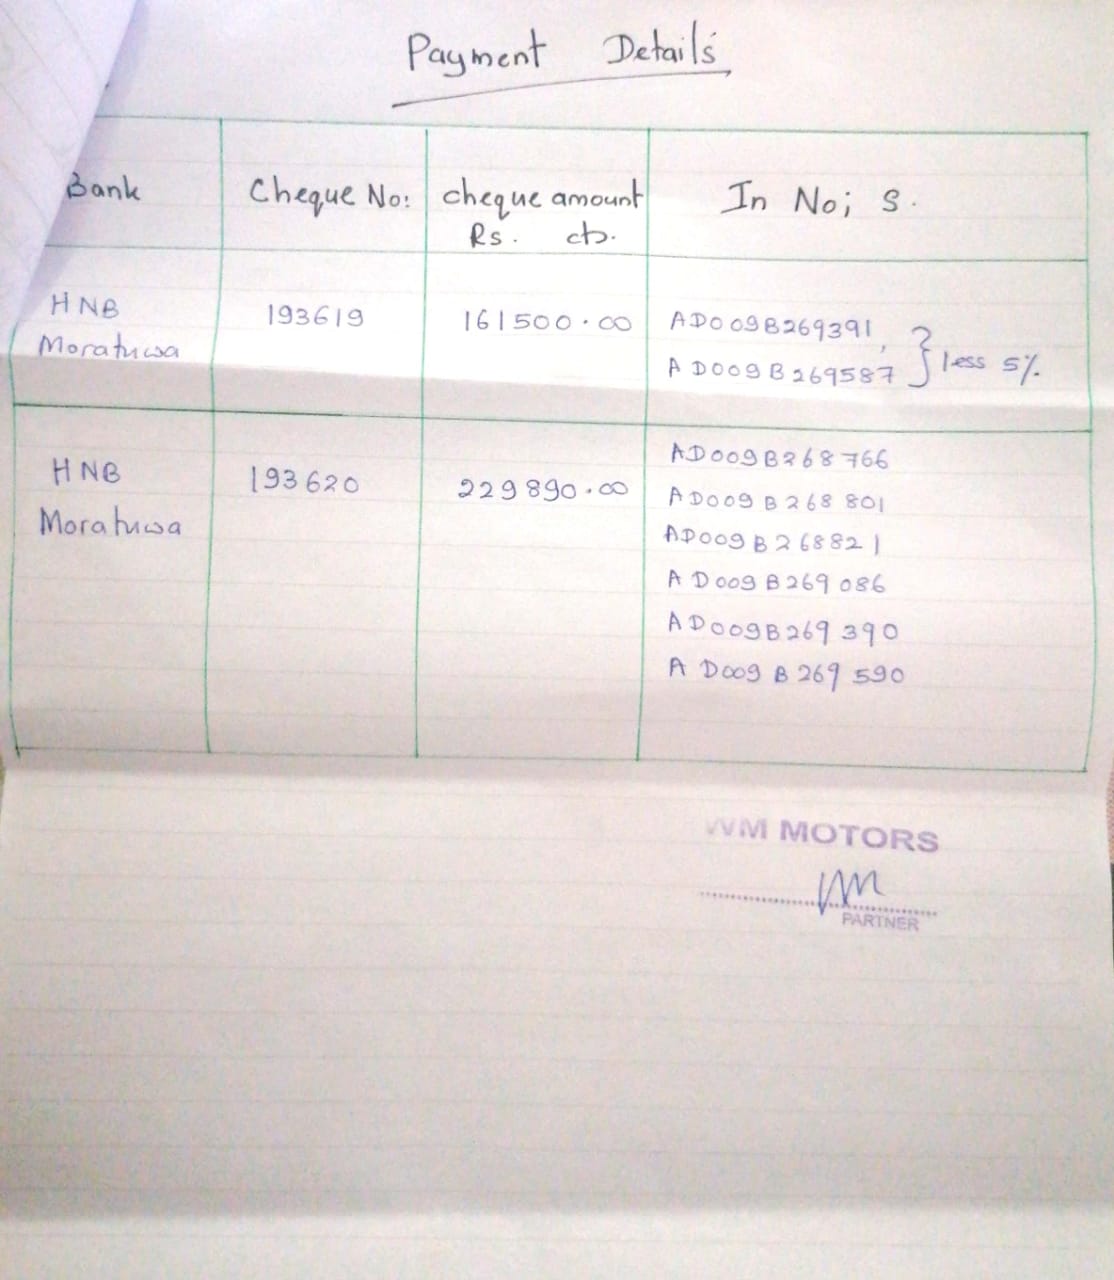 Payment Details
Bank
Cheque No:
cheque amount
Rs. cts.
In No; s.
HNB
Moratuwa
193619
161500.00
AD009B269391,
AD009B269587
} less 5%
HNB
Moratuwa
193620
229890.00
AD009B268766
AD009B268801
AD009B268821
AD009B269086
AD009B269390
AD009B269590
WM MOTORS
PARTNER